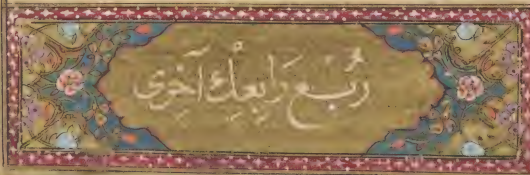 رُبع رَابعِڭ آخِرى